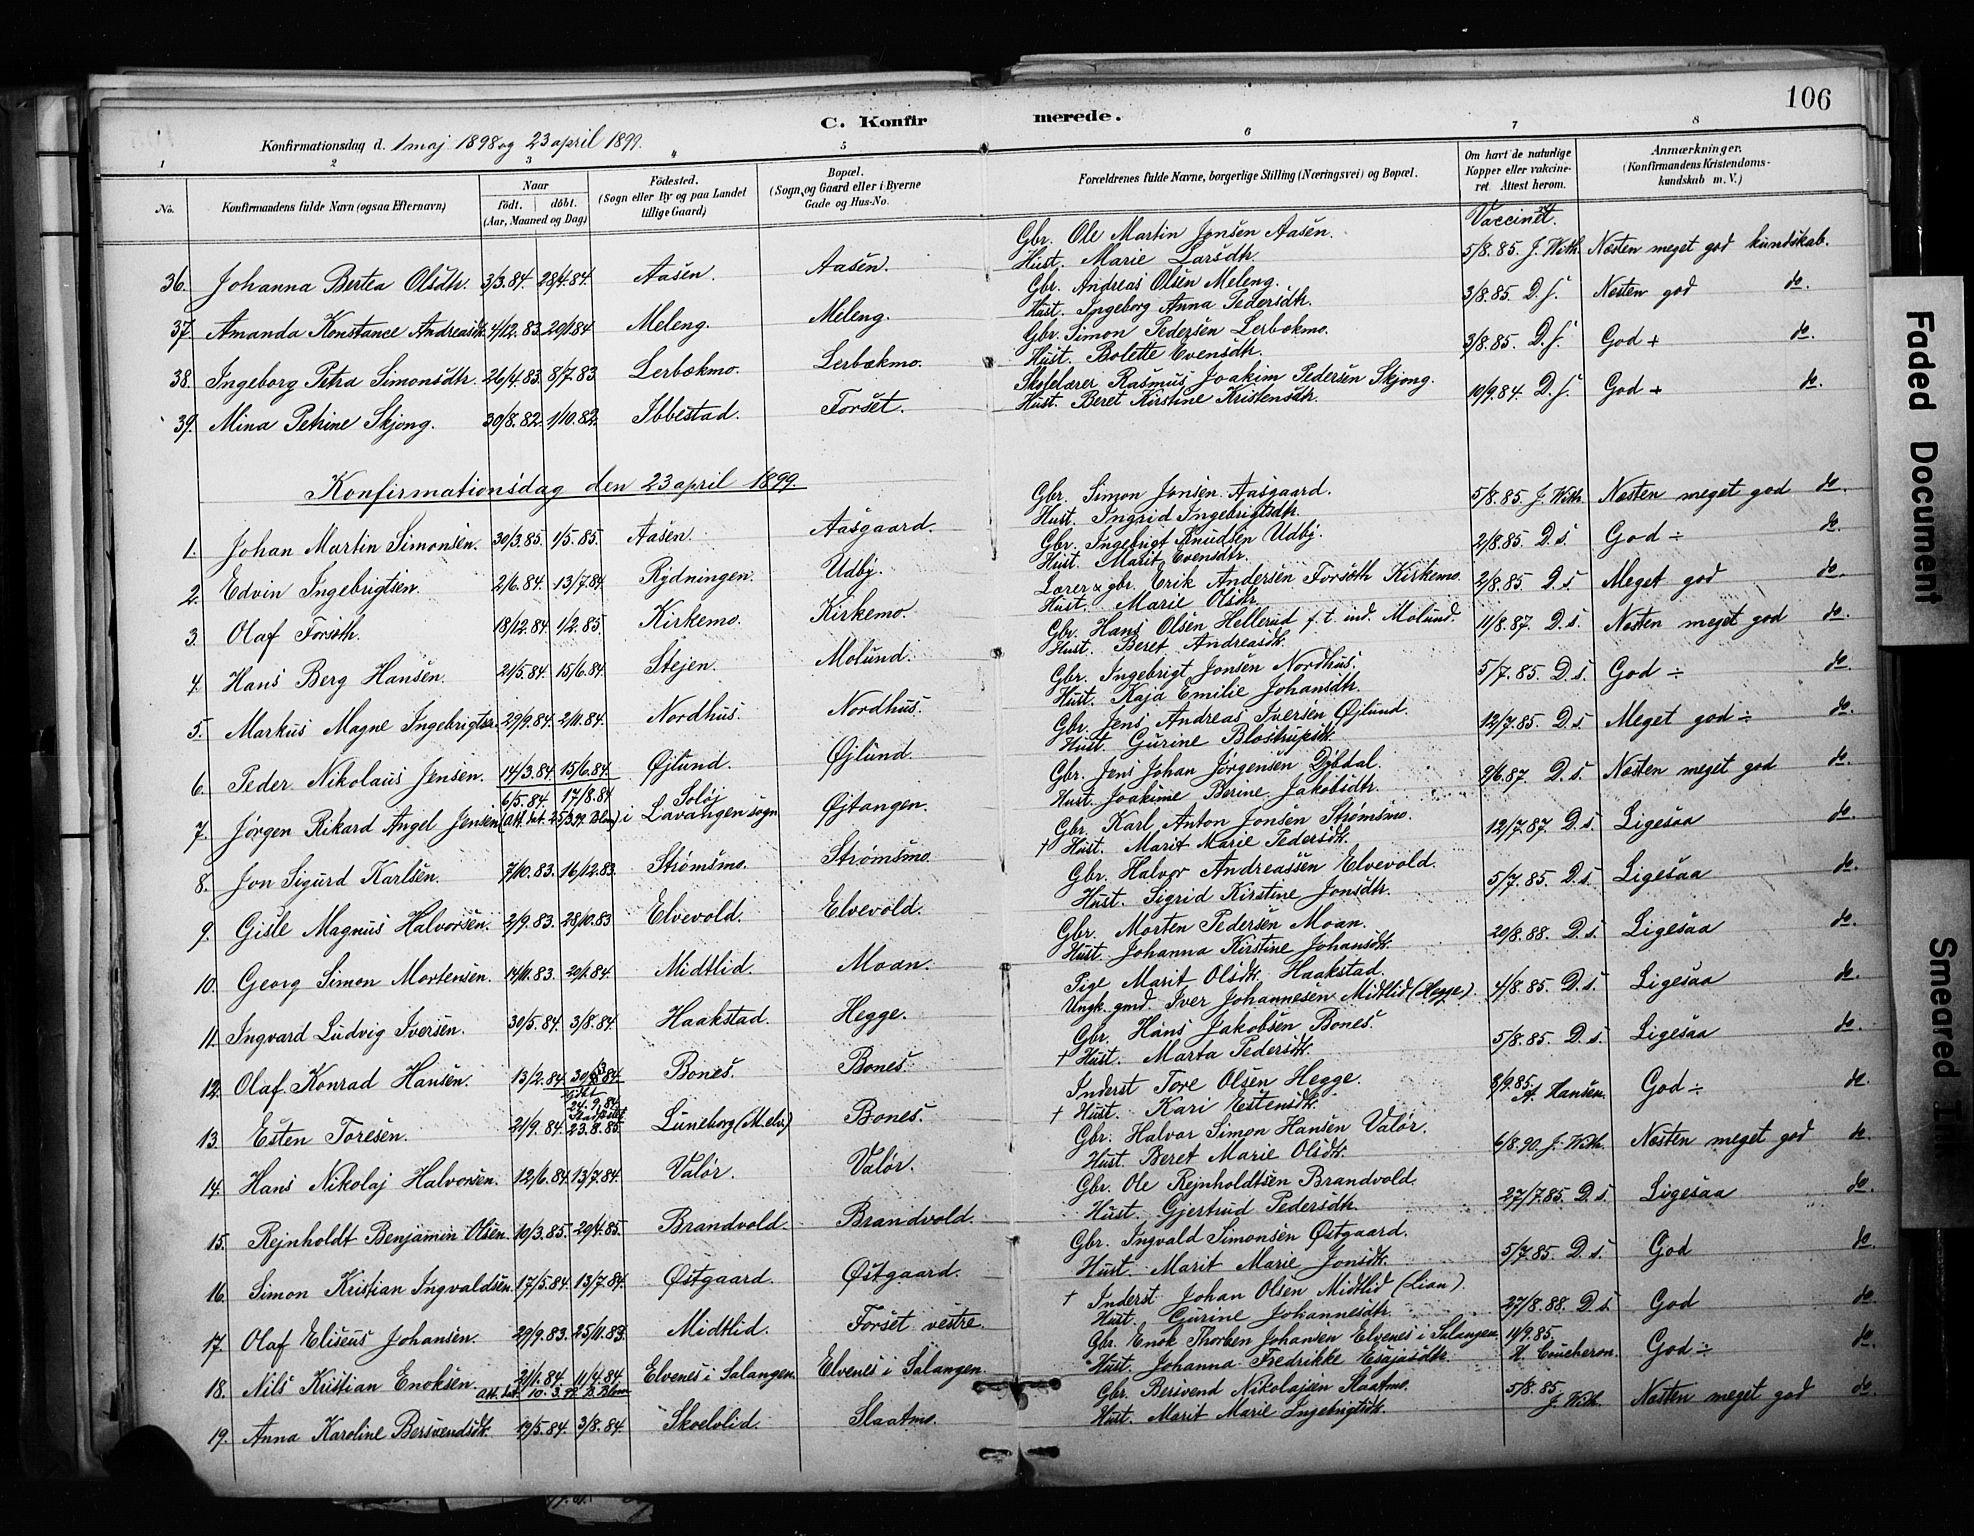 106
C. Konfirmerede.
Konfirmationsdag d. 1 maj 1898 og 23 april 1899.
1 2 3 4 5 6 7 8
No. Konfirmandens fulde Navn (ogsaa Efternavn) Naar födt. döbt. (Aar, Maaned og Dag) Födested. (Sogn eller By og paa Landet tillige Gaard) Bopæl. (Sogn og Gaard eller i Byerne Gade og Hus-No. Forældrenes fulde Navne, borgerlige Stilling (Næringsvei) og Bopæl. Om havt de naturlige Kopper eller vakcineret Attest herom. Anmærkninger. (Konfirmandens Kristendomskundskab m. V.)
Vaccinet.
36. Johanna Bertea Olsdtr. 3/3.84. 28/4.84. Aasen. Aasen. Gbr. Ole Martin Jonsen Aasen. 5/8.85. J. With. Næsten meget god kundskab.
Hust. Marie Larsdtr.
37. Amanda Konstance Andreasdt. 4/12.83. 20/1.84 Meleng. Meleng. Gbr. Andreas Olsen Meleng. 3/8.85. D. s. Næsten god do.
Hust. Ingeborg Anna Pedersdtr.
38. Ingeborg Petra Simonsdtr. 26/4.83. 8/7.83. Lerbækmo. Lerbækmo. Gbr. Simon Pedersen Lerbækmo. 3/8.85. D. s. God + do.
Hust. Bolette Evensdtr.
39. Mina Petrine Skjong. 30/8.82. 1/10.82. Ibbestad. Forset. Skolelærer Rasmus Joakim Pedersen Skjong. 10/9.84. D. s. God + do.
Hust. Beret Kirstine Kristensdtr.
Konfirmationsdag den 23 april 1899.
1. Johan Martin Simonsen. 30/3.85. 1/5.85. Aasen. Aasgaard. Gbr. Simon Jonsen Aasgaard. 5/8.85. J. With. Næsten meget god do.
Hust. Ingrid Ingebrigtsdtr.
2. Edvin Ingebrigtsen. 2/6.84. 13/7.84 Rydningen. Udbj. Gbr. Ingebrigt Knudsen Udbj. 2/8.85. D. s. God ÷ do.
Hust. Marit Evensdtr.
3. Olaf Forseth. 18/12.84 1/2.85. Kirkemo. Kirkemo. Lærer & gbr. Erik Andersen Forseth Kirkemo. 2/8.85 D. s. Meget god do.
Hust. Marie Olsdtr.
4. Hans Berg Hansen. 21/5.84. 15/6.84. Stejen. Molund. Gbr. Hans Olsen Hellerud f. t. ind. Molund. 11/8.87. D. s. Næsten meget god do.
Hust. Beret Andreasdt.
5. Markus Magne Ingebrigtsen. 29/9.84. 2/11.84. Nordhus. Nordhus. Gbr. Ingebrigt Jonsen Nordhus. 5/7.85. D. s. God ÷ do.
Hust. Kaja Emilie Johansdtr.
6. Peder Nikolaus Jensen. 14/3.84. 15/6.84. Øjlund. Øjlund. Gbr. Jens Andreas Iversen Øjlund. 12/7.85. D. s. Meget god ÷ do.
Hust. Gurine Blostrupsdt.
7. Jørgen Rikard Angel Jensen 6/5.84. 17/8.84 (Att. bet. 25/3.99. Blom) Soløj i Lavangen sogn Øjtangen. Gbr. Jens Johan Jørgensen Dybdal. 9/6.87. D. s. Næsten meget god do.
Hust. Joakime Berine Jakobsdtr.
8. Jon Sigurd Karlsen. 7/10.83. 16/12.83. Strømsmo. Strømsmo. Gbr. Karl Anton Jonsen Strømsmo. 12/7.87. D. s. Ligesaa do.
† Hust. Marit Marie Pedersdt.
9. Gisle Magnus Halvorsen. 2/9.83. 28/10.83 Elvevold. Elvevold. Gbr. Halvor Andreassen Elvevold. 5/7.85. D. s. Ligesaa do.
Hust. Sigrid Kirstine Jonsdtr.
10. Georg Simon Mortensen. 14/11.83. 20/1.84. Midtlid. Moan. Gbr. Morten Pedersen Moan. 20/8.88. D. s. Ligesaa do.
Hust. Johanna Kirstine Johansdt.
11. Ingvard Ludvig Iversen. 30/5.84. 3/8.84. Haakstad. Hegge. Pige Marit Olsdt. Haakstad. 4/8.85. D. s. Ligesaa do.
Ungk. gmd. Iver Johannesen Midtlid (Hegge).
12. Olaf Konrad Hansen. 13/2.84. 30/3.84 Bones. Bones. Gbr. Hans Jakobsen Bones. 5/8.85. D. s. Ligesaa do.
† Hust. Marta Pedersdt.
13. Esten Toresen. 21/9.84. 24.9.84. 23.8.85. Luneborg (M.elv.) Bones. Inderst Tore Olsen Hegge. 8/9.85. A. Hansen. God ÷ do.
† Hust. Kari Estensdt.
14. Hans Nikolaj Halvorsen. 12/6.84. 13/7.84. Valør. Valør. Gbr. Halvor Simon Hansen Valør. 6/8.90. J. With. Næsten meget god do.
Hust. Beret Marie Olsdt.
15. Rejnholdt Benjamin Olsen. 10/3.85. 20/4.85. Brandvold. Brandvold. Gbr. Ole Rejnholdtsen Brandvold. 27/7.85. D. s. Ligesaa do.
Hust. Gjertrud Pedersdtr.
16. Simon Kristian Ingvaldsen. 17/5.84. 13/7.84. Østgaard. Østgaard. Gbr. Ingvald Simonsen Østgaard. 5/7.85. D. s. God do.
Hust. Marit Marie Jonsdt.
17. Olaf Eliseus Johansen. 29/9.83. 25/11.83. Midtlid. Forset vestre. † Inderst Johan Olsen Midtlid (Lian). 27/8.88. D. s. God do.
Hust. Gurine Johannesdtr.
18. Nils Kristian Enoksen. 21/1.84. 11/4.84 Elvenes i Salangen. Elvenes i Salangen. Gbr. Enok Thorben Johansen Elvenes i Salangen. 14/9.85. H. Coucheron. God ÷ do.
Att. bet. 10.3.99. Blom Hust. Johanna Fredrikke Esajasdt.
19. Anna Karoline Bersvendsdt. 19/5.84. 3/8.84. Skoelvlid. Slaatmo. Gbr. Berivend Nikolajsen Slaatmo. 5/8.85. J. With. Næsten meget god do.
Hust. Marit Marie Ingebrigtsdt.
Faded Document
Smeared